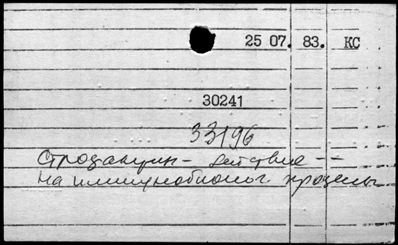 25 07. 83. КС
30241
33196
– действие --
на иммунобиолог. процессы